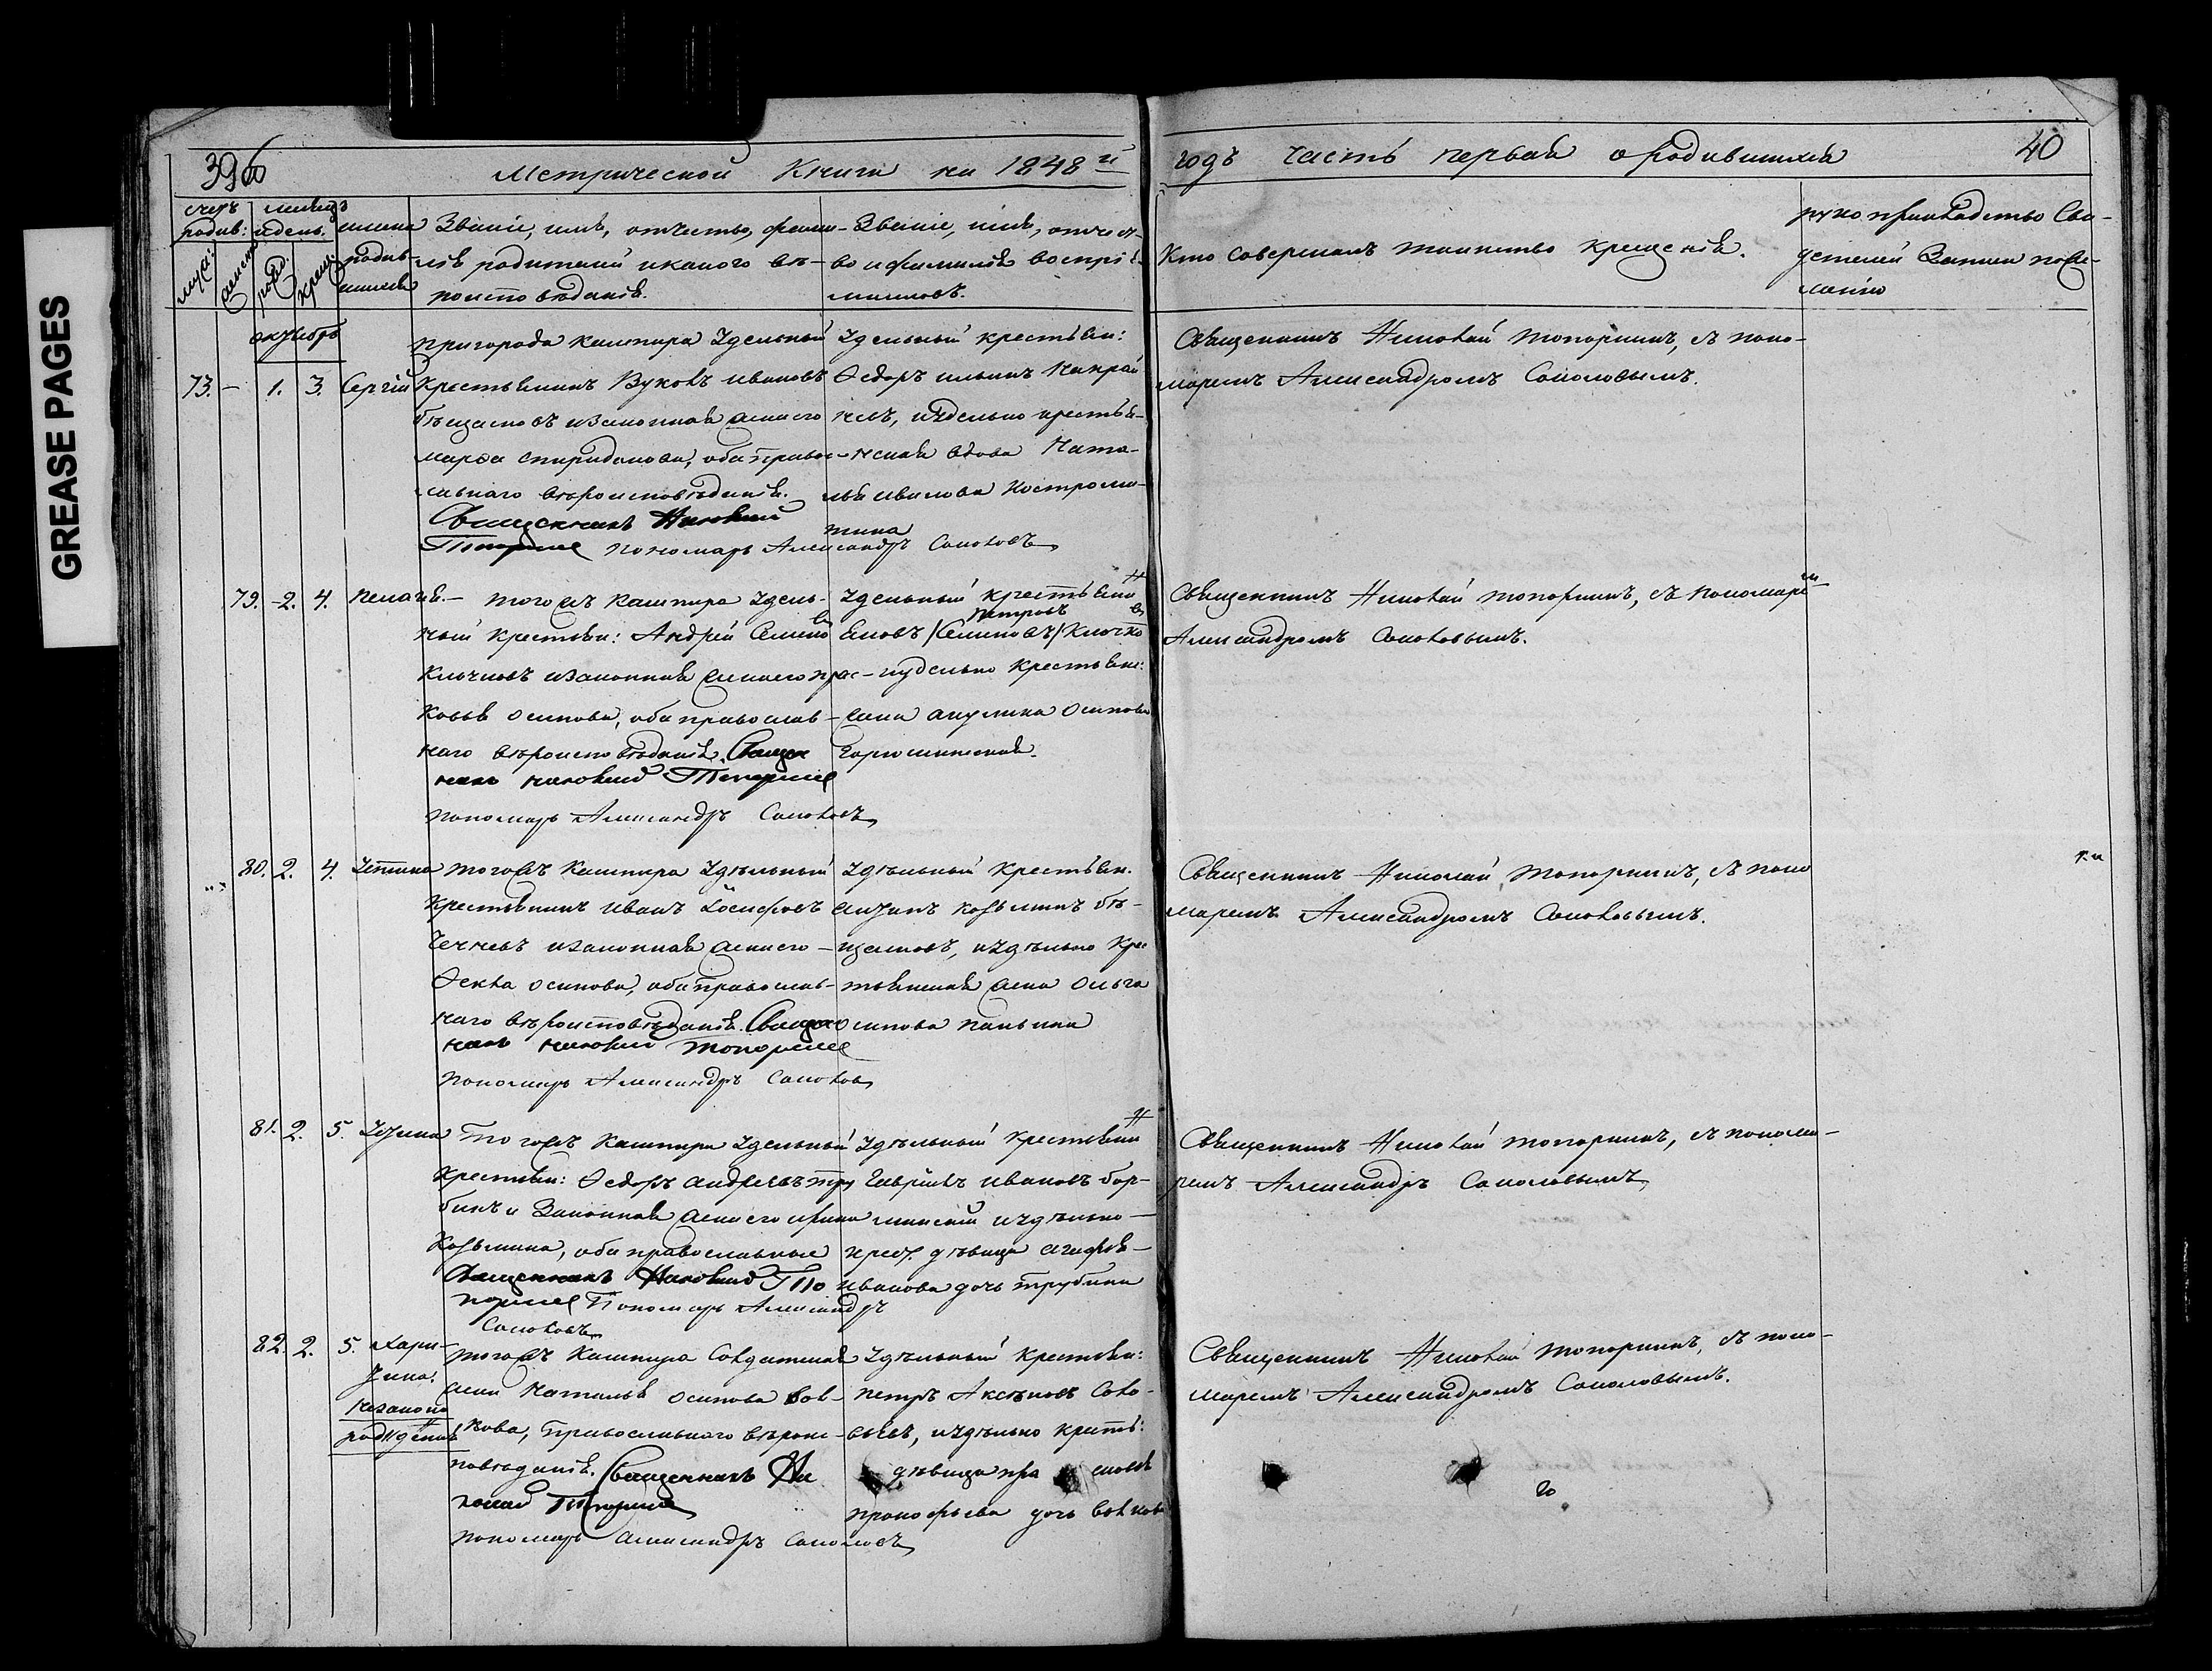 GREASE PAGES
396
Метрической Книги на 1848 й
годъ часть первая о родившихся
40
счетъ родив:
месяцъ и день.
муж:
женск:
рожд.
крещ.
имена родив-
шихся
Званіе, имя, отчество, фами-
лія родителей и какого вѣ-
роисповѣданія.
Званіе, имя, отчест-
во и фамилія воспріе-
мниковъ.
Кто совершалъ таинство крещенія.
рукоприкладство Сви-
детелей Записи по же-
ланію
октябрь
73. — 1. 3. Сергій
пригорода Кашпира Удельный
Крестьянинъ Вуколъ Ивановъ
и законная жена его
Марѳа Спиридонова, оба право-
славнаго вѣроисповѣданія.
Священникъ Николай
Топорнинъ пономарь Александръ Соколовъ
Удельный крестьян:
Ѳедоръ Ильинъ
и удельно крестья-
нская вдова Ната-
лья Иванова Костроми-
тина
Священникъ Николай Топорнинъ, съ поно-
маремъ Александромъ Соколовымъ.
79. 2. 4. Пелагія.
того жъ Кашпира Удель-
ный крестьян: Андрей Семено
Клочковъ и законная жена его Прас-
ковья Осипова, оба православ-
наго вѣроисповѣданія. Священ
никъ Николай Топорнинъ
пономарь Александръ Соколовъ
Удельный крестьянин
Петровъ
/Семеновъ/ Клочко
и удельно крестьян:
жена Акулина Осипова
Священникъ Николай Топорнинъ, съ пономарем
Александромъ Соколовымъ.
80. 2. 4. Устина
того жъ Кашпира Удѣльный
Крестьянинъ Иванъ Іосифовъ
и законная жена его
Ѳекла Осипова, оба православ-
наго вѣроисповѣданія. Священ
никъ Николай Топорнинъ
пономарь Александръ Соколовъ
Удѣльный крестьян.
Козьминъ бѣ-
щановъ, и удѣльно Крес
тьянская жена Ольга
Осипова Панькина
Священникъ Николай Топорнинъ, съ поно
маремъ Александромъ Соколовымъ.
81. 2. 5. Устина
Того жъ Кашпира Удельный
Крестьян: Ѳедоръ Андреевъ Тру
бинъ и Законная жена его Ирина
Козьмина, оба православные
Священникъ Николай То
порнинъ Пономарь Александръ
Соколовъ
Удѣльный крестьянин
Гаврилъ Ивановъ Бор-
и удѣльно
крест. дѣвица Агафья
Иванова дочь Трубина
Священникъ Николай Топорнинъ, съ понома-
ремъ Александръ Соколовымъ
82. 2. 5. Хари-
тина.
незаконно
рожденная
того жъ Кашпира Солдатская
жена Наталья Осипова Вол-
кова, Православнаго вѣроис-
повѣданія. Священникъ Ни
колай Топорнинъ
пономарь Александръ Соколовъ
Удѣльный Крестьян:
Петръ Аксеновъ Соло-
вьевъ, и удѣльно кресть:
дѣвица
Прокофьева дочь Волкова
Священникъ Николай Топорнинъ, съ поно-
маремъ Александромъ Соколовымъ.